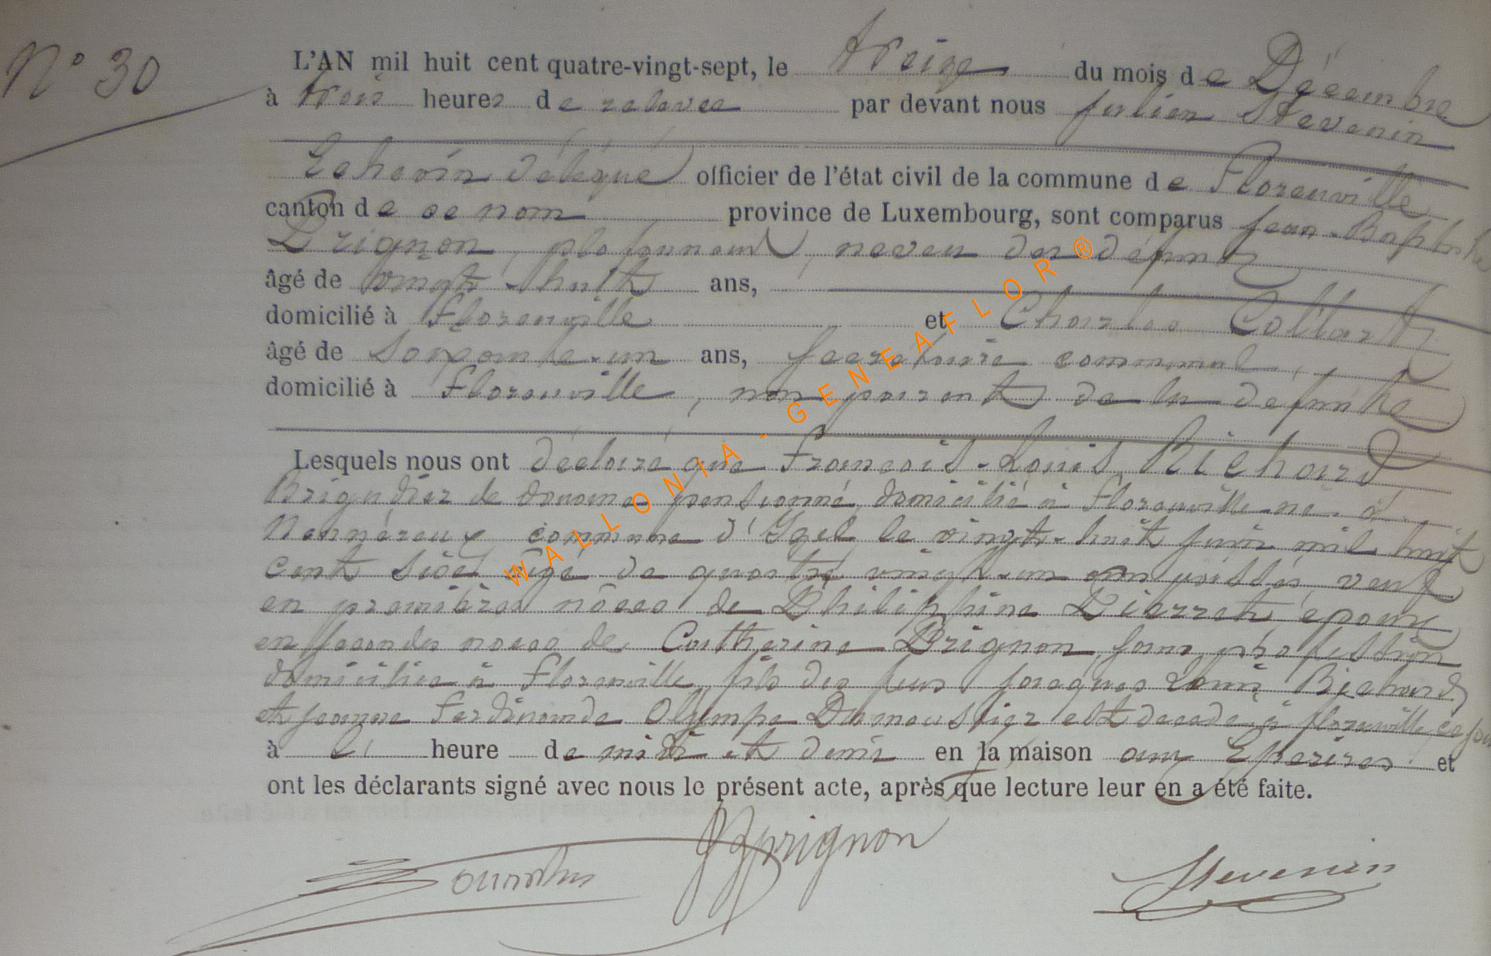 N° 30
L'AN mil huit cent quatre-vingt-sept, le treize du mois de Décembre
à trois heures de relevée par devant nous Julien Stevenin
Echevin délégué officier de l'état civil de la commune de Florenville
canton de ce nom province de Luxembourg, sont comparus Jean-Baptiste
Prignon, plafonneur, neveu du défunt
âgé de vingt-huit ans,
domicilié à Florenville et Charles Collart
âgé de soixante-un ans, secrétaire communal,
domicilié à Florenville, non parent de la défunte
Lesquels nous ont déclaré que François-Louis Richard
Brigadier de douane pensionné, domicilié à Florenville né à
commune d'Izel le vingt-huit juin mil huit
cent six âgé de quatre vingt-un ans passés, veuf
en premières nôces de Philiphine Pierret, époux
en secondes noces de Catherine Prignon, sans profession
domiciliée à Florenville, fils des feus Jacques Louis Richard
et Jeanne Ferdinande Olympe Dumoustier est décédé à Florenville, ce jour
à heure de midi et demi en la maison aux Epezires et
ont les déclarants signé avec nous le présent acte, après que lecture leur en a été faite.
JBPrignon
Stevenin
WALLONIA - GENEAFLOR ®